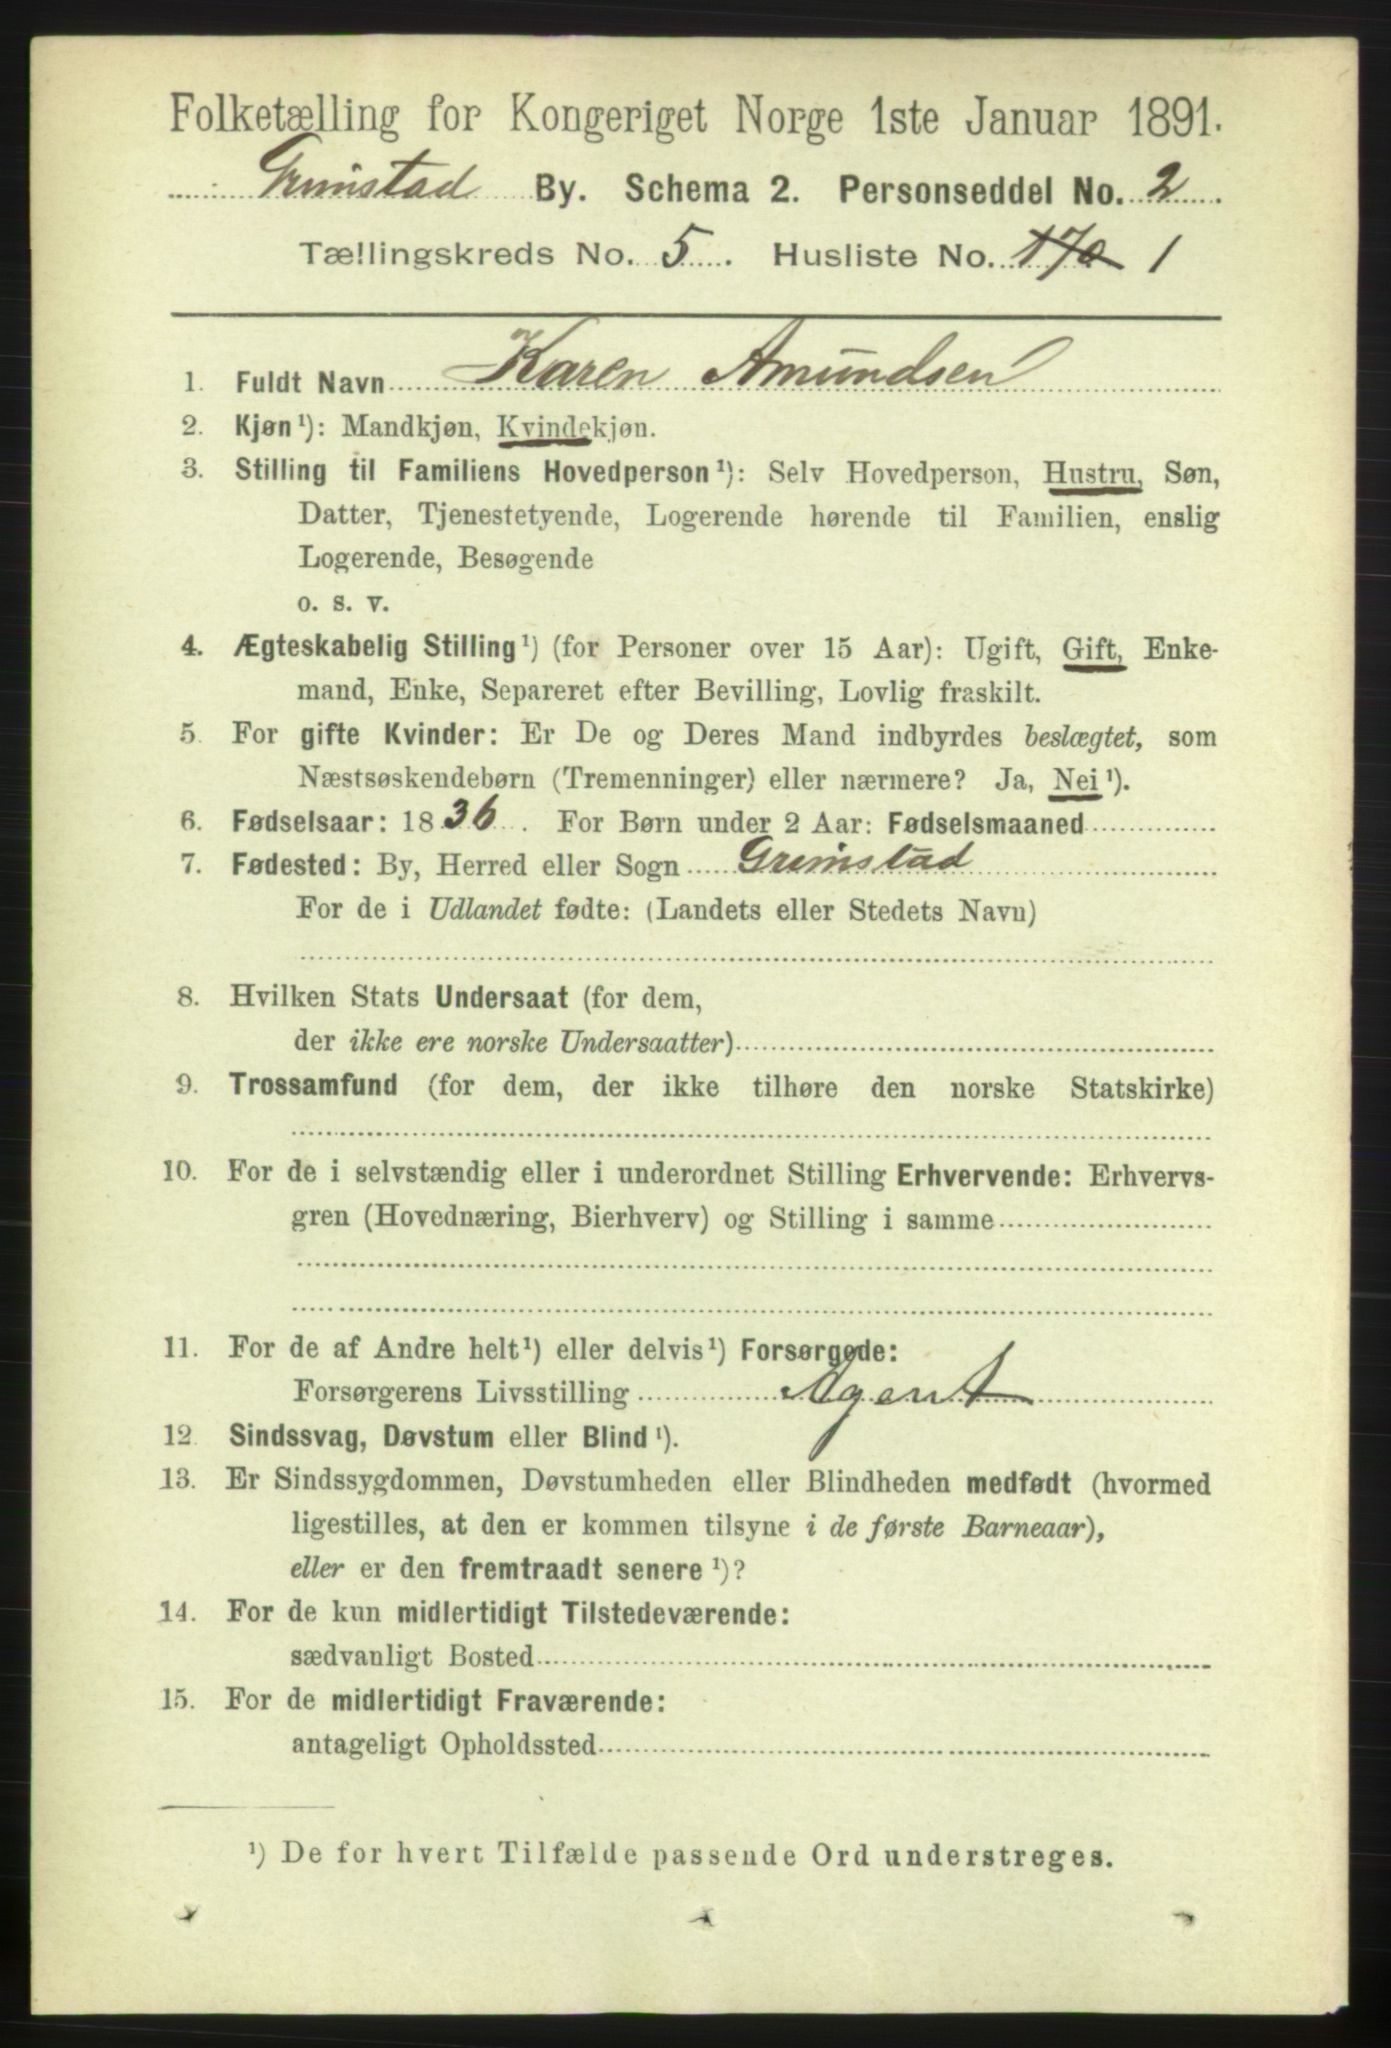 Folketælling for Kongeriget Norge 1ste Januar 1891.
Grimstad By. Schema 2. Personseddel No. 2
Tællingskreds No. 5. Husliste No. 170 1
1. Fuldt Navn Karen Amundsen
2. Kjøn ¹): Mandkjøn, Kvindekjøn.
3. Stilling til Familiens Hovedperson ¹): Selv Hovedperson, Hustru, Søn,
Datter, Tjenestetyende, Logerende hørende til Familien, enslig
Logerende, Besøgende
o. s. v.
4. Ægteskabelig Stilling ¹) (for Personer over 15 Aar): Ugift, Gift, Enke-
mand, Enke, Separeret efter Bevilling, Lovlig fraskilt.
5. For gifte Kvinder: Er De og Deres Mand indbyrdes beslægtet, som
Næstsøskendebørn (Tremenninger) eller nærmere? Ja, Nei ¹).
6. Fødselsaar: 1836. For Børn under 2 Aar: Fødselsmaaned
7. Fødested: By, Herred eller Sogn Grimstad
For de i Udlandet fødte: (Landets eller Stedets Navn)
8. Hvilken Stats Undersaat (for dem,
der ikke ere norske Undersaatter)
9. Trossamfund (for dem, der ikke tilhøre den norske Statskirke)
10. For de i selvstændig eller i underordnet Stilling Erhvervende: Erhvervs-
gren (Hovednæring, Bierhverv) og Stilling i samme
11. For de af Andre helt ¹) eller delvis ¹) Forsørgede:
Forsørgerens Livsstilling Agent
12. Sindssvag, Døvstum eller Blind ¹).
13. Er Sindssygdommen, Døvstumheden eller Blindheden medfødt (hvormed
ligestilles, at den er kommen tilsyne i de første Barneaar),
eller er den fremtraadt senere ¹)?
14. For de kun midlertidigt Tilstedeværende:
sædvanligt Bosted
15. For de midlertidigt Fraværende:
antageligt Opholdssted
¹) De for hvert Tilfælde passende Ord understreges.